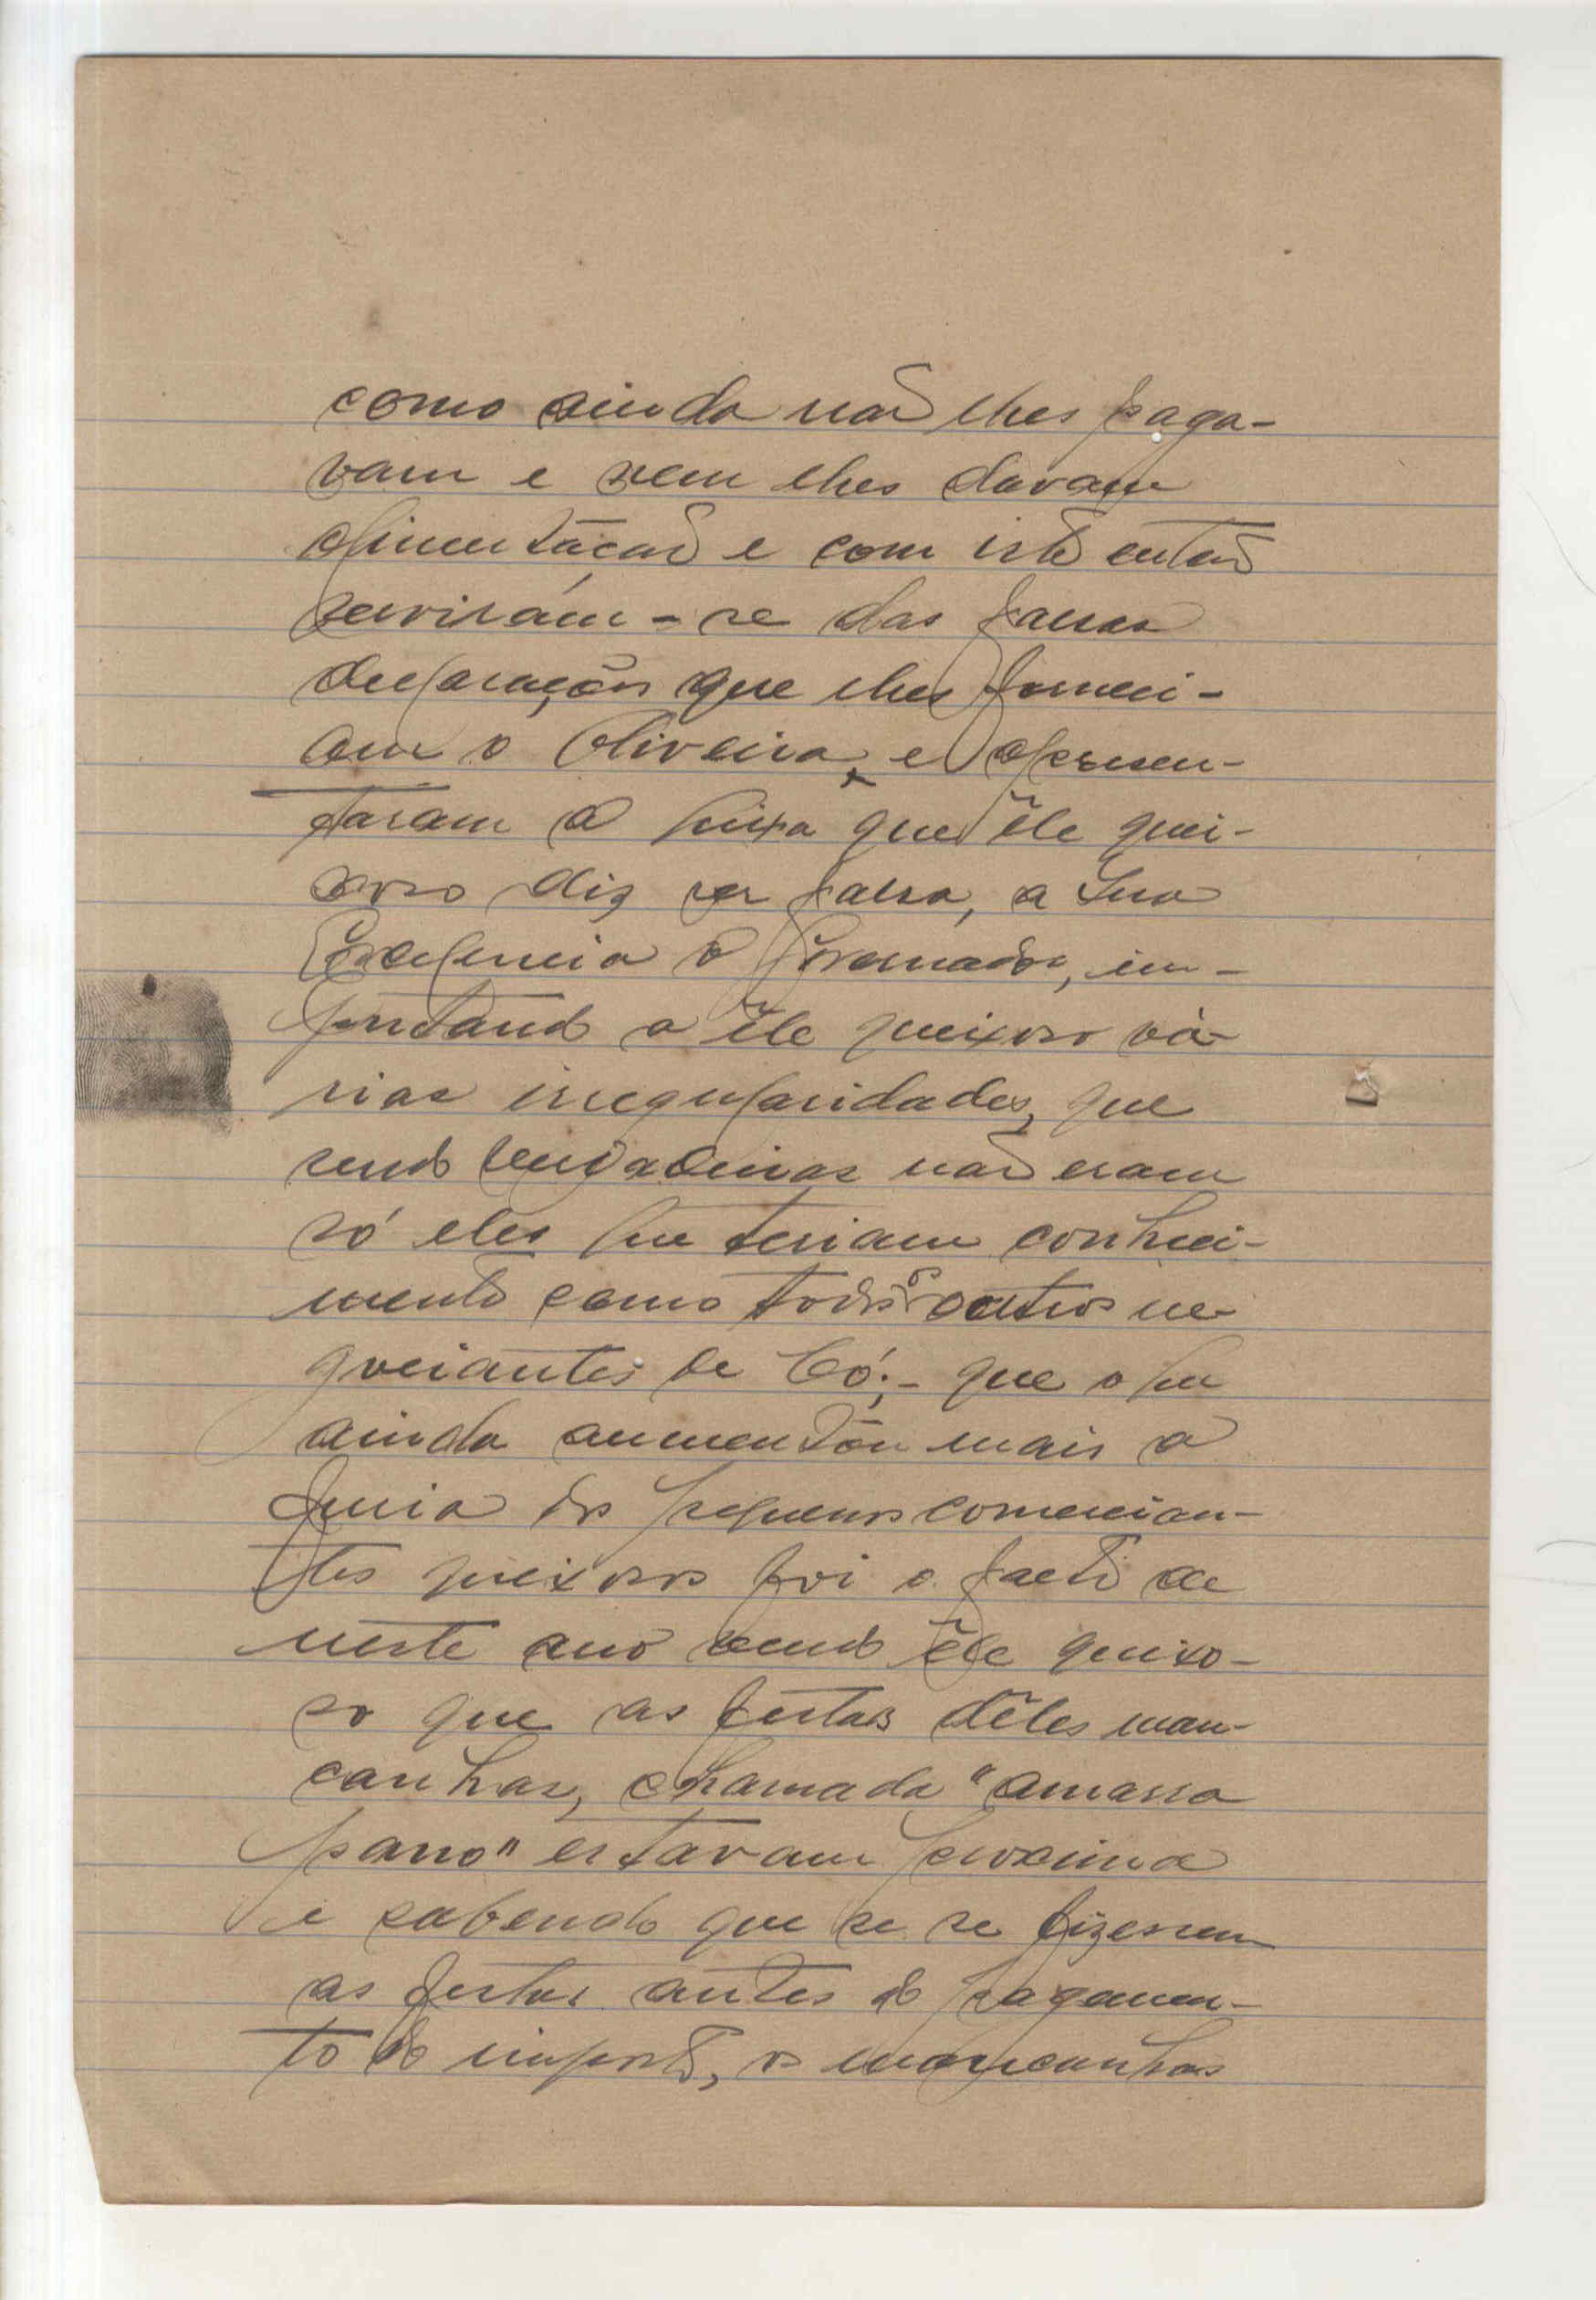 como ainda não lhes paga-
vam e nem lhes davam
alimentação e com isto então
servirám-se das falsas
declarações que lhes forneci-
am o Oliveira e apresen-
taram a queixa que êle quei-
xoso diz ser falsa, a Sua
Excelencia o Governador, im-
portando a êle queixoso vá-
rias irregularidades, que
sendo verdadeiras não eram
só eles que teriam conheci-
mento como todos os outros ne-
gociantes de Có;- que o que
ainda aumentou mais a
furia dos pequenos comercian-
tes queixosos foi o facto de
neste ano vendo êle queixo-
so que as festas dêles man-
canhas, chamada "amassa
barro" estavam proxima
e sabendo que se se fizessem
as festas antes do pagamen-
to do imposto, os mancanhas